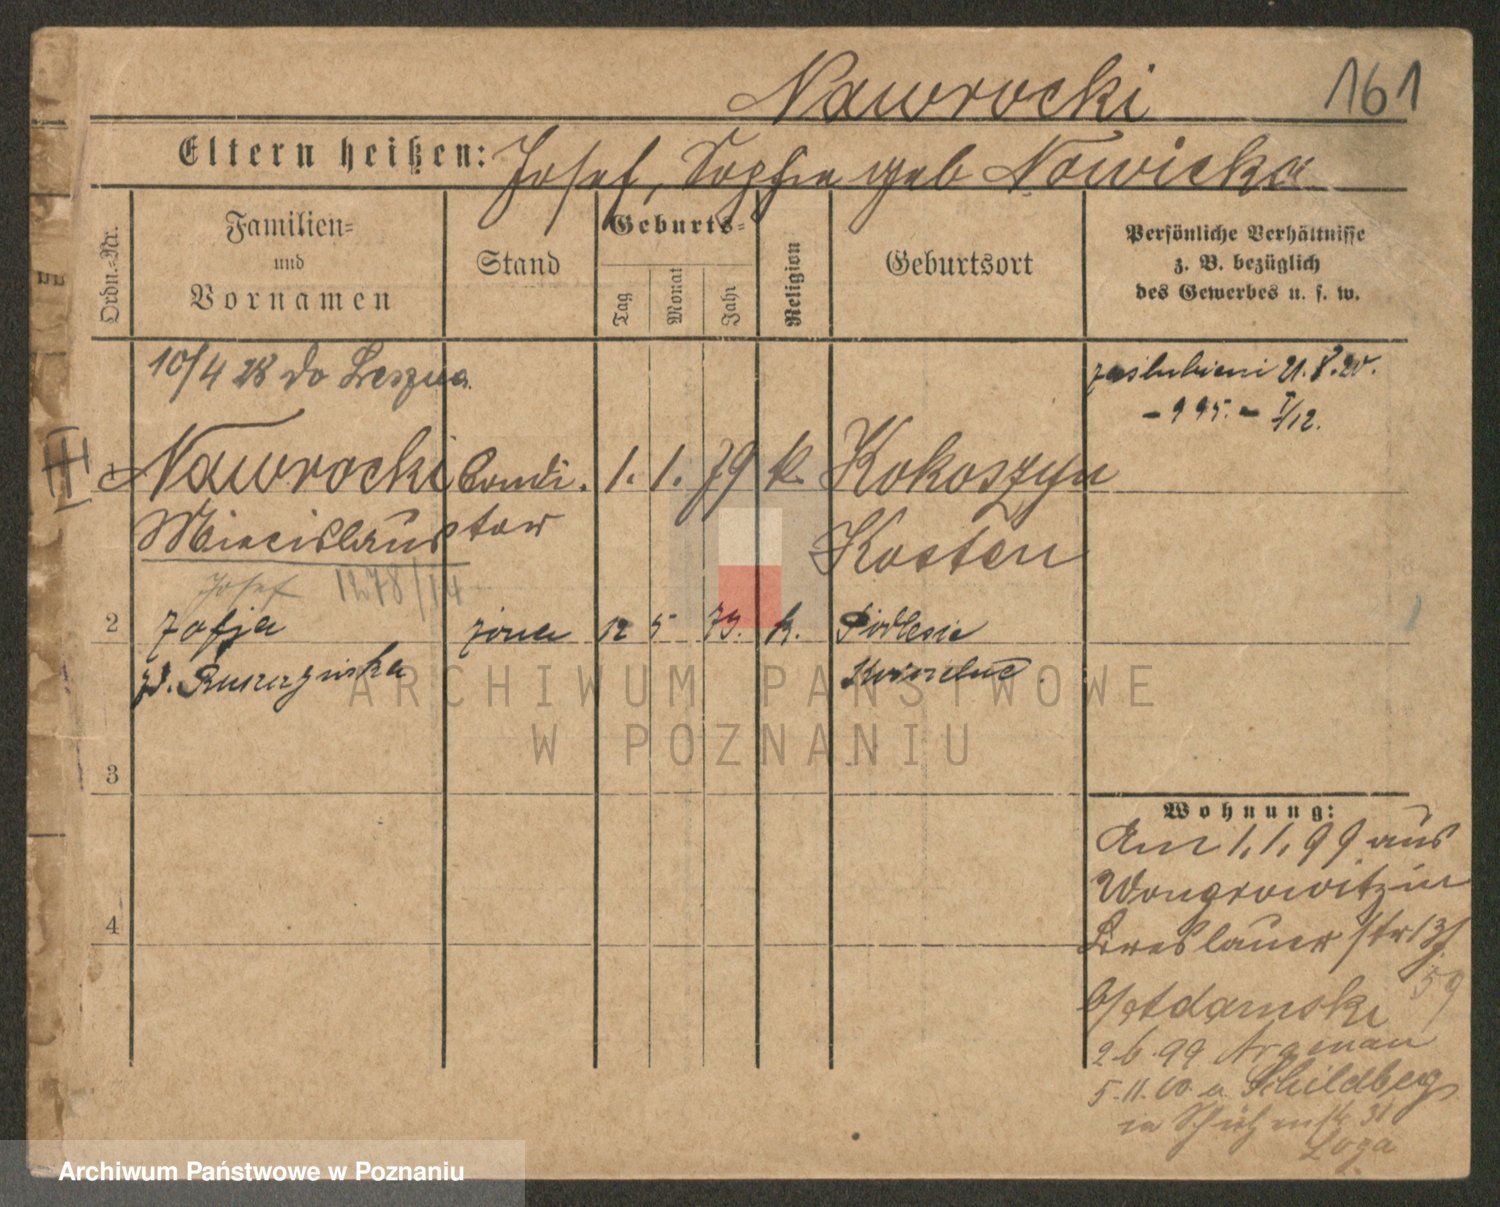 Nawrocki 161
Eltern heißen: Josef, Sophie geb Nowicka
Ordn.-Nr.
Familien-
und
Vornamen
Stand
Geburts-
Tag
Monat
Jahr
Religion
Geburtsort
Persönliche Verhältnisse
z. B. bezüglich
des Gewerbes u. s. w.
10/4 28 do Leszna
zaślubieni 21.8.20.
- 995. - I/12.
III
1 Nawrocki Condi- 1. 1. 79 k. Kokoszyn
Miecislaus tor Kosten
Josef 1278/14
2 Zofja żona 12 5 79. k. Podlesie
zd. Kościelne.
3
4
Wohnung:
Am 1.1.99 aus
Wongrowitz in
Breslauerstr 37
59
b/Adamski
2.6.99 Argenau
5.11.00 a Schildberg
in Schützenstr 31
Loga
ARCHIWUM PAŃSTWOWE
W POZNANIU
Archiwum Państwowe w Poznaniu